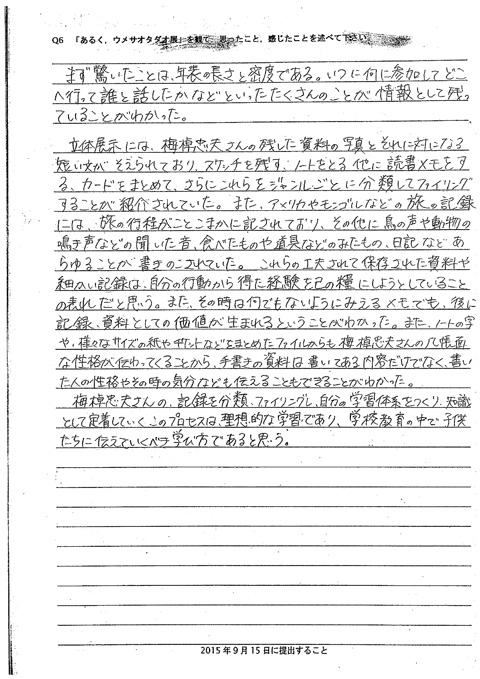 Q6 「あるく、ウメサオタダオ展」を観て 思ったこと、感じたことを述べて下さい。
まず驚いたことは、年表の長さと密度である。いつに何に参加してどこ
へ行って誰と話したかなどといったたくさんのことが情報として残っ
ていることがわかった。
立体展示には、梅棹忠夫さんの残した資料の写真とそれに対になる
短い文がそえられており、スケッチを残す、ノートをとる他に読書メモをす
る、カードをまとめて、さらにこれらをジャンルごとに分類してファイリング
することが紹介されていた。また、アメリカやモンゴルなどの旅の記録
には、旅の行程がことこまかに記されており、その他に鳥の声や動物の
鳴き声などの聞いた音、食べたものや道具などのみたもの、日記などあ
らゆることが書きのこされていた。これらの工夫されて保存された資料や
細かい記録は、自分の行動から得た経験を己の糧にしようとしていること
の表れだと思う。また、その時は何でもないようにみえるメモでも、後に
記録、資料としての価値が生まれるということがわかった。また、ノートの字
や、様々なサイズの紙やチケットなどをまとめたファイルからも梅棹忠夫さんの几帳面
な性格が伝わってくることから、手書きの資料は書いてある内容だけでなく、書い
た人の性格やその時の気分なども伝えることもできることがわかった。
梅棹忠夫さんの、記録を分類、ファイリングし、自分の学習体系をつくり、知識
として定着していくこのプロセスは、理想的な学習であり、学校教育の中で子供
たちに伝えていくべき学び方であると思う。
2015年9月15日に提出すること